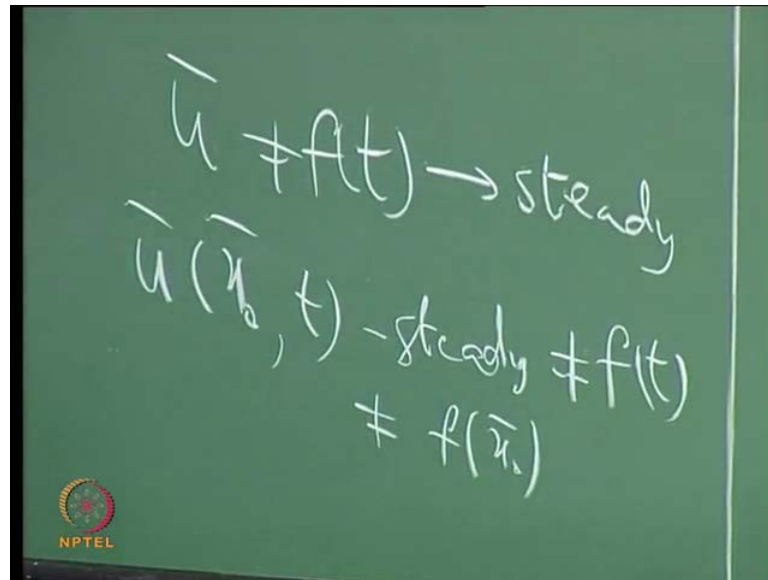 ū ≠ f(t) → steady
ū (x̄₀, t) - steady ≠ f(t)
≠ f(x̄₀)
NPTEL